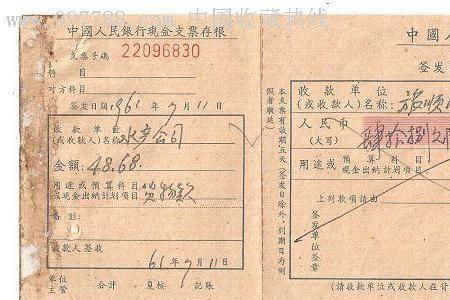 中國人民銀行現金支票存根
支票字碼 22096830
科目
对方科目
签发日期 1961年7月11日
收款單位
(或收款人)名称: 水产公司
金額: 48.68.
用途或預算科目
或現金出納計划項目 货物款
备註:
收款人签收
61年7月11日
單位主管 会計 复核 記賬
本支票有效期五天(签发日除外,到期日为例假者顺延)
中國人
签发
收款單位
(或收款人)名称: 旅順
人民币
(大写) 肆拾捌元
用途或預算科目
現金出納計划項目
上列款項請由
签发單位签章
(請收款單位或收款人在背